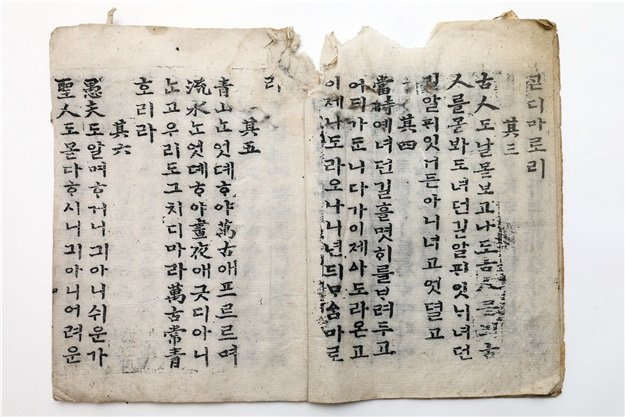 ᄀᆞᆮ디마로리
其三
古人도날몯보고나도古人몯뵈古
人를몯봐도녀던길알ᄑᆡ잇ᄂᆡ녀던
길알ᄑᆡ잇거든아니녀고엇덜고
其四
當時예녀던길흘몃ᄒᆡ를ᄇᆞ려두고
어듸가ᄃᆞᆫ니다가이제사도라온고
이제나도라오나니년듸ᄆᆞᄉᆞᆷ마로
리
其五
靑山ᄂᆞᆫ엇뎨ᄒᆞ야萬古애프르르며
流水ᄂᆞᆫ엇뎨ᄒᆞ야晝夜애긋디아니
ᄂᆞᆫ고우리도그치디마라萬古常靑
호리라
其六
愚夫도알며ᄒᆞ거니긔아니쉬운가
聖人도몯다ᄒᆞ시니긔아니어려운